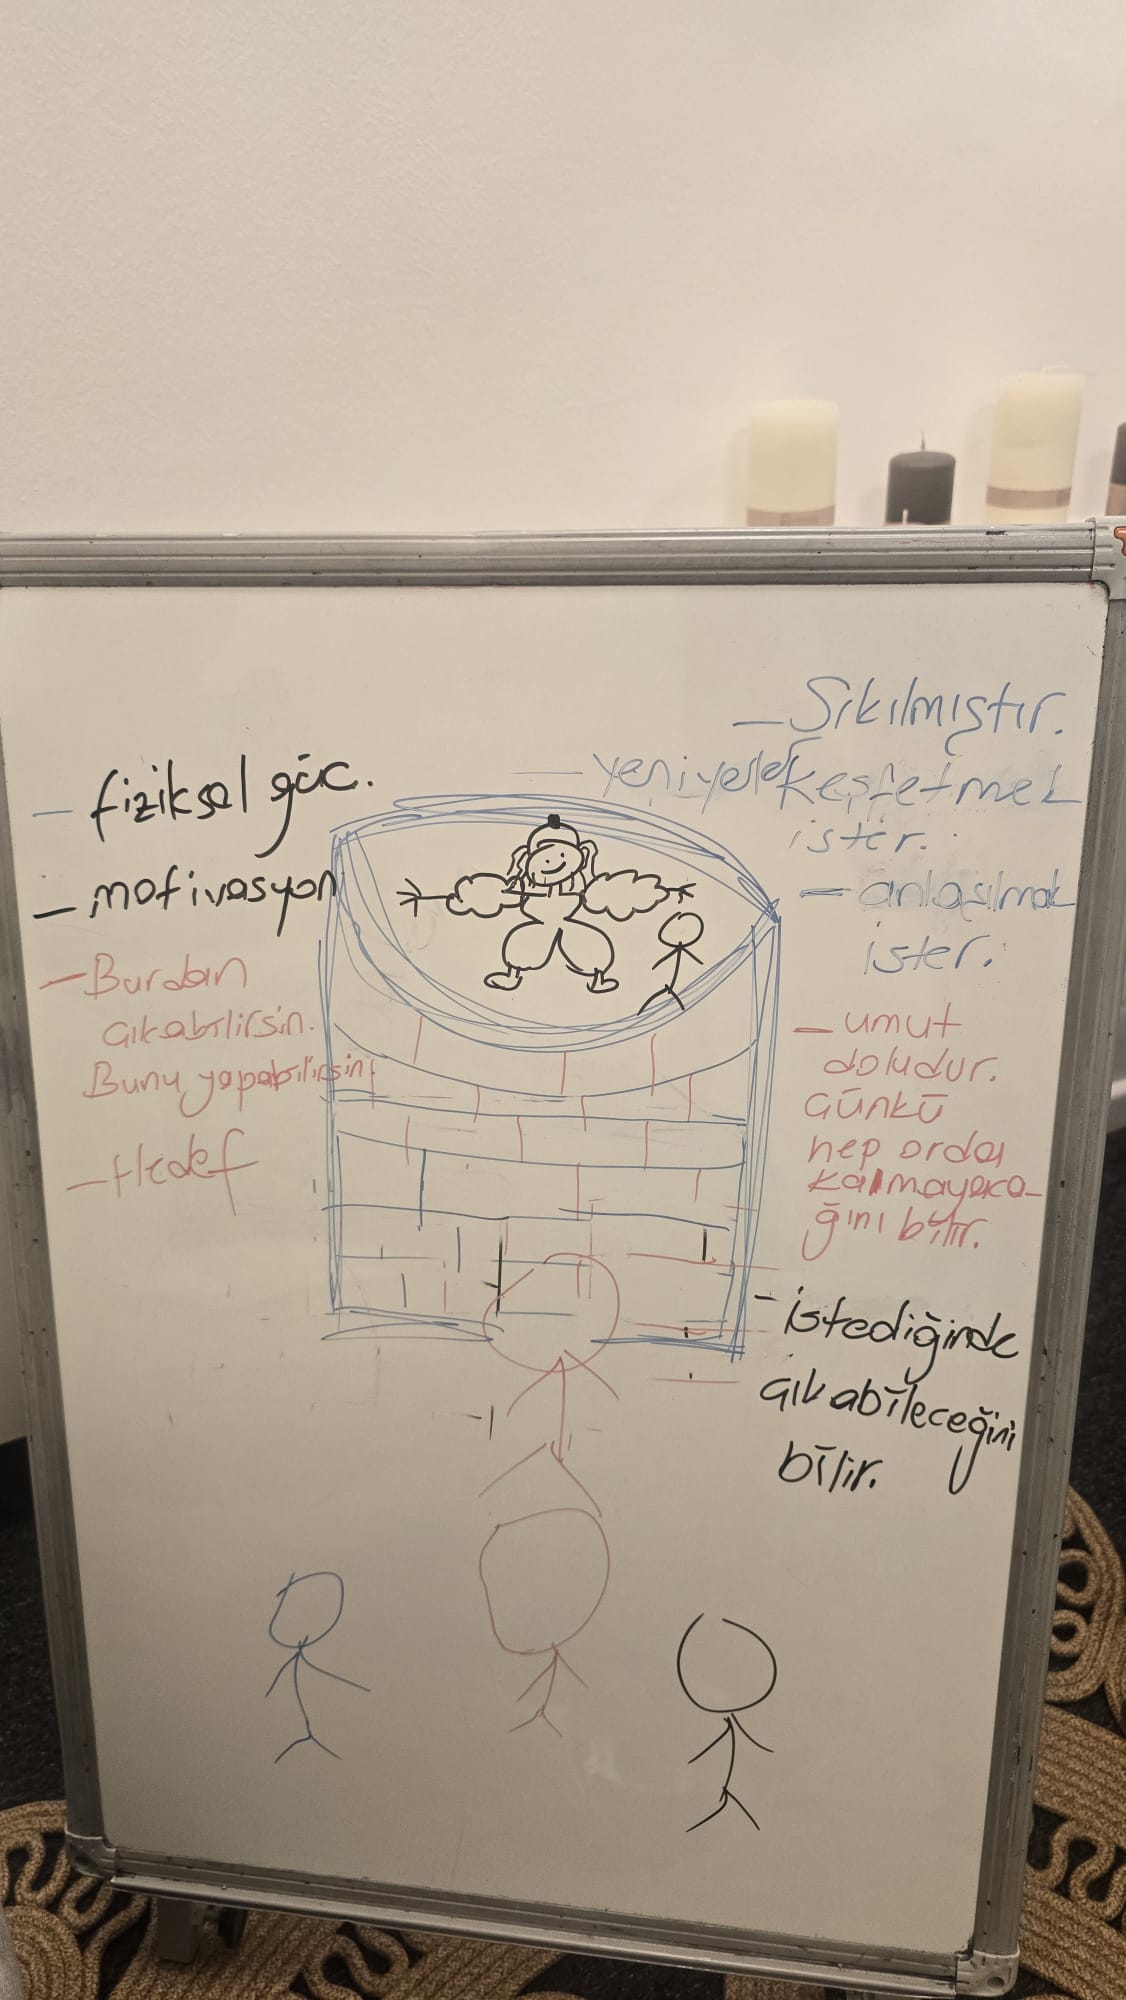 - fiziksel güc.
- motivasyon
- Burdan
çıkabilirsin.
Bunu yapabilirsin
- Hedef
- Sıkılmıştır.
- yeni yerler keşfetmek
ister.
- anlaşılmak
ister.
- umut
doludur.
Çünkü
hep orda
kalmayaca-
ğını bilir.
- istediğinde
çıkabileceğini
bilir.